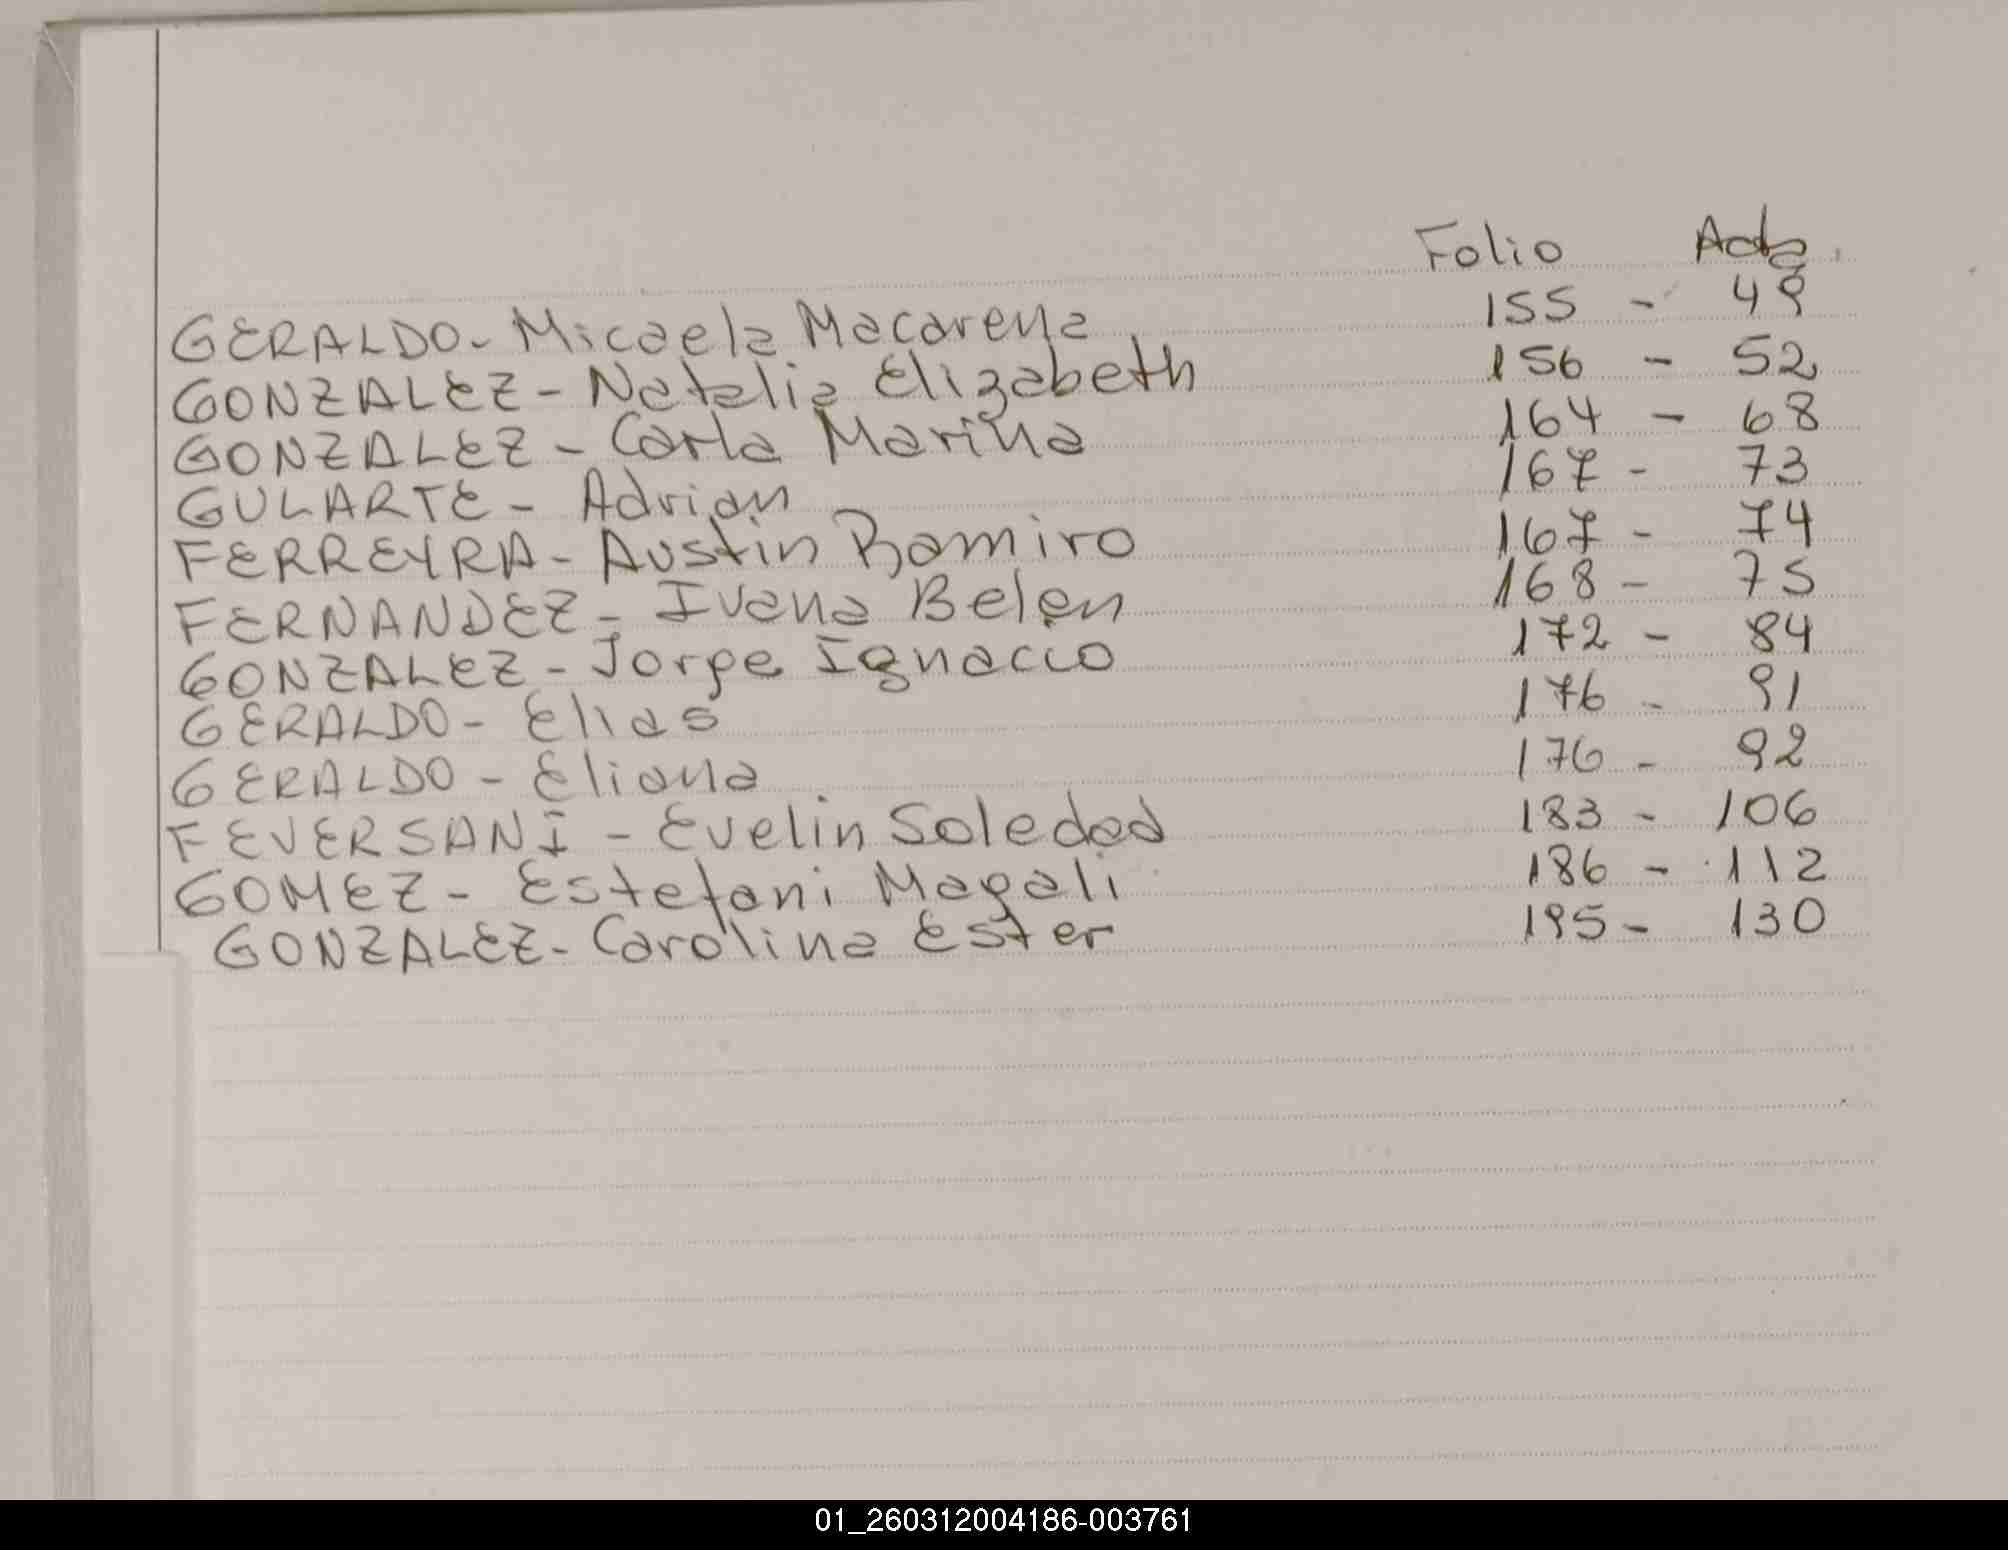 Folio Acta
GERALDO - Micaela Macarena 155 - 49
GONZALEZ - Natalia Elizabeth 156 - 52
GONZALEZ - Carla Marina 164 - 68
GULARTE - Adrian 167 - 73
FERREYRA - Austin Ramiro 167 - 74
FERNANDEZ - Ivana Belen 168 - 75
GONZALEZ - Jorge Ignacio 172 - 84
GERALDO - Elias 176 - 91
GERALDO - Eliana 176 - 92
FEVERSANI - Evelin Soledad 183 - 106
GOMEZ - Estefani Magali 186 - 112
GONZALEZ - Carolina Ester 195 - 130
01_260312004186-003761